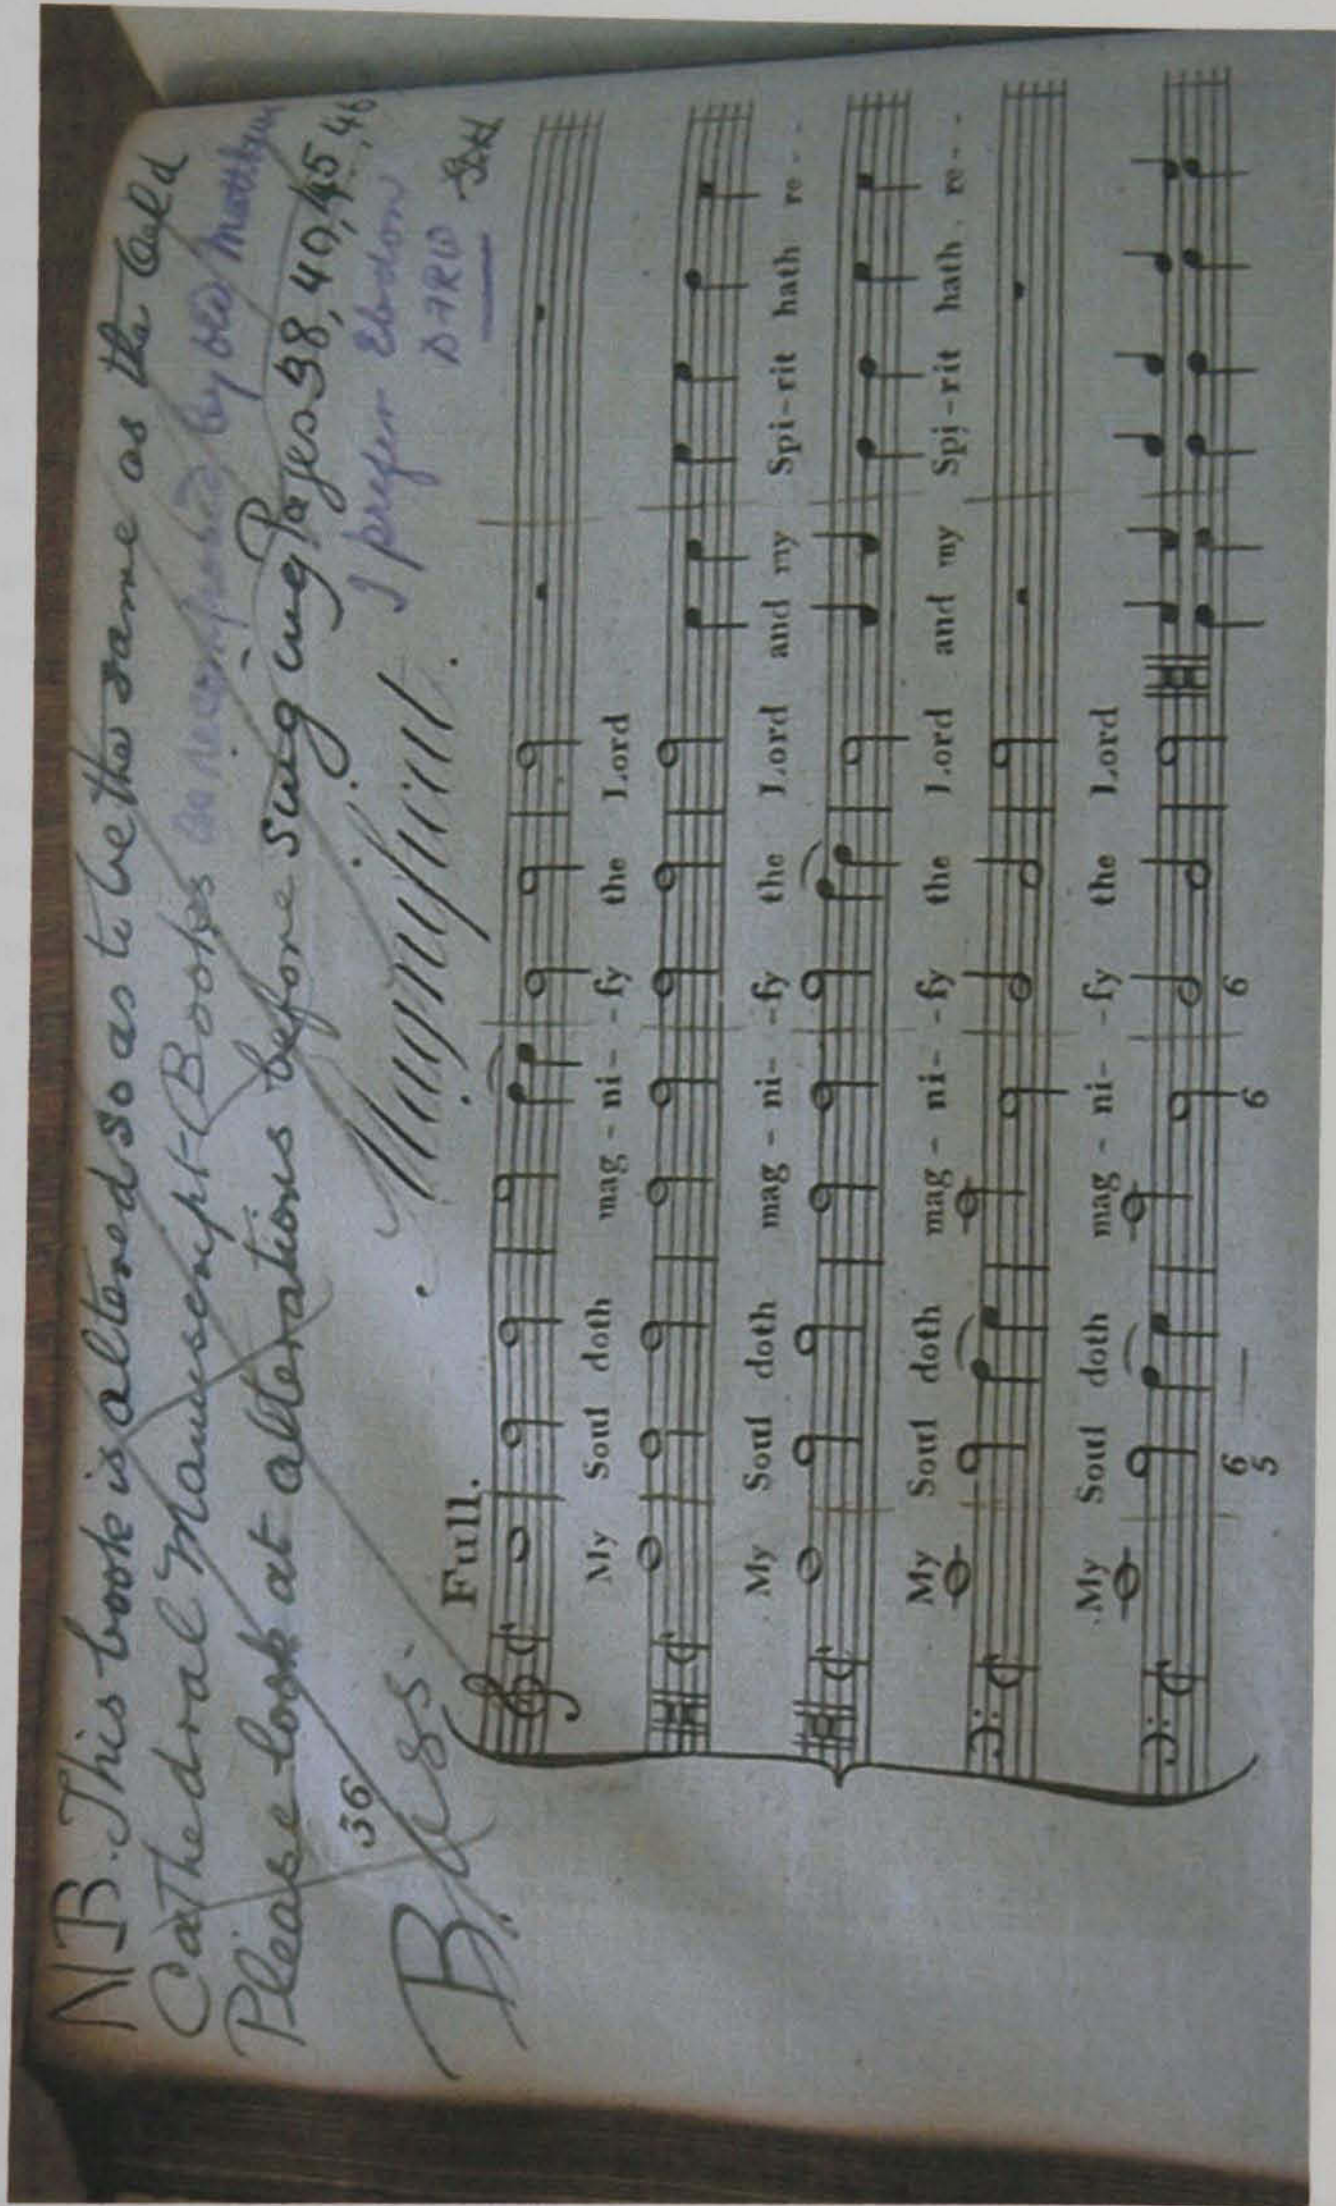 NB. This book is altered so as to be the same as the old
Cathedral Manuscript Books as recomposed by old Matthew
Please look at alterations before singing Pages 38, 40, 45, 46
I prefer Ebdon
36
DARW
Bass.
Magnificat.
Full.
My Soul doth mag - ni - - fy the Lord
My Soul doth mag - ni - - fy the Lord and my Spi - rit hath re - -
My Soul doth mag - ni - - fy the Lord and my Spi - rit hath re - -
My Soul doth mag - ni - - fy the Lord
6 6 6
5